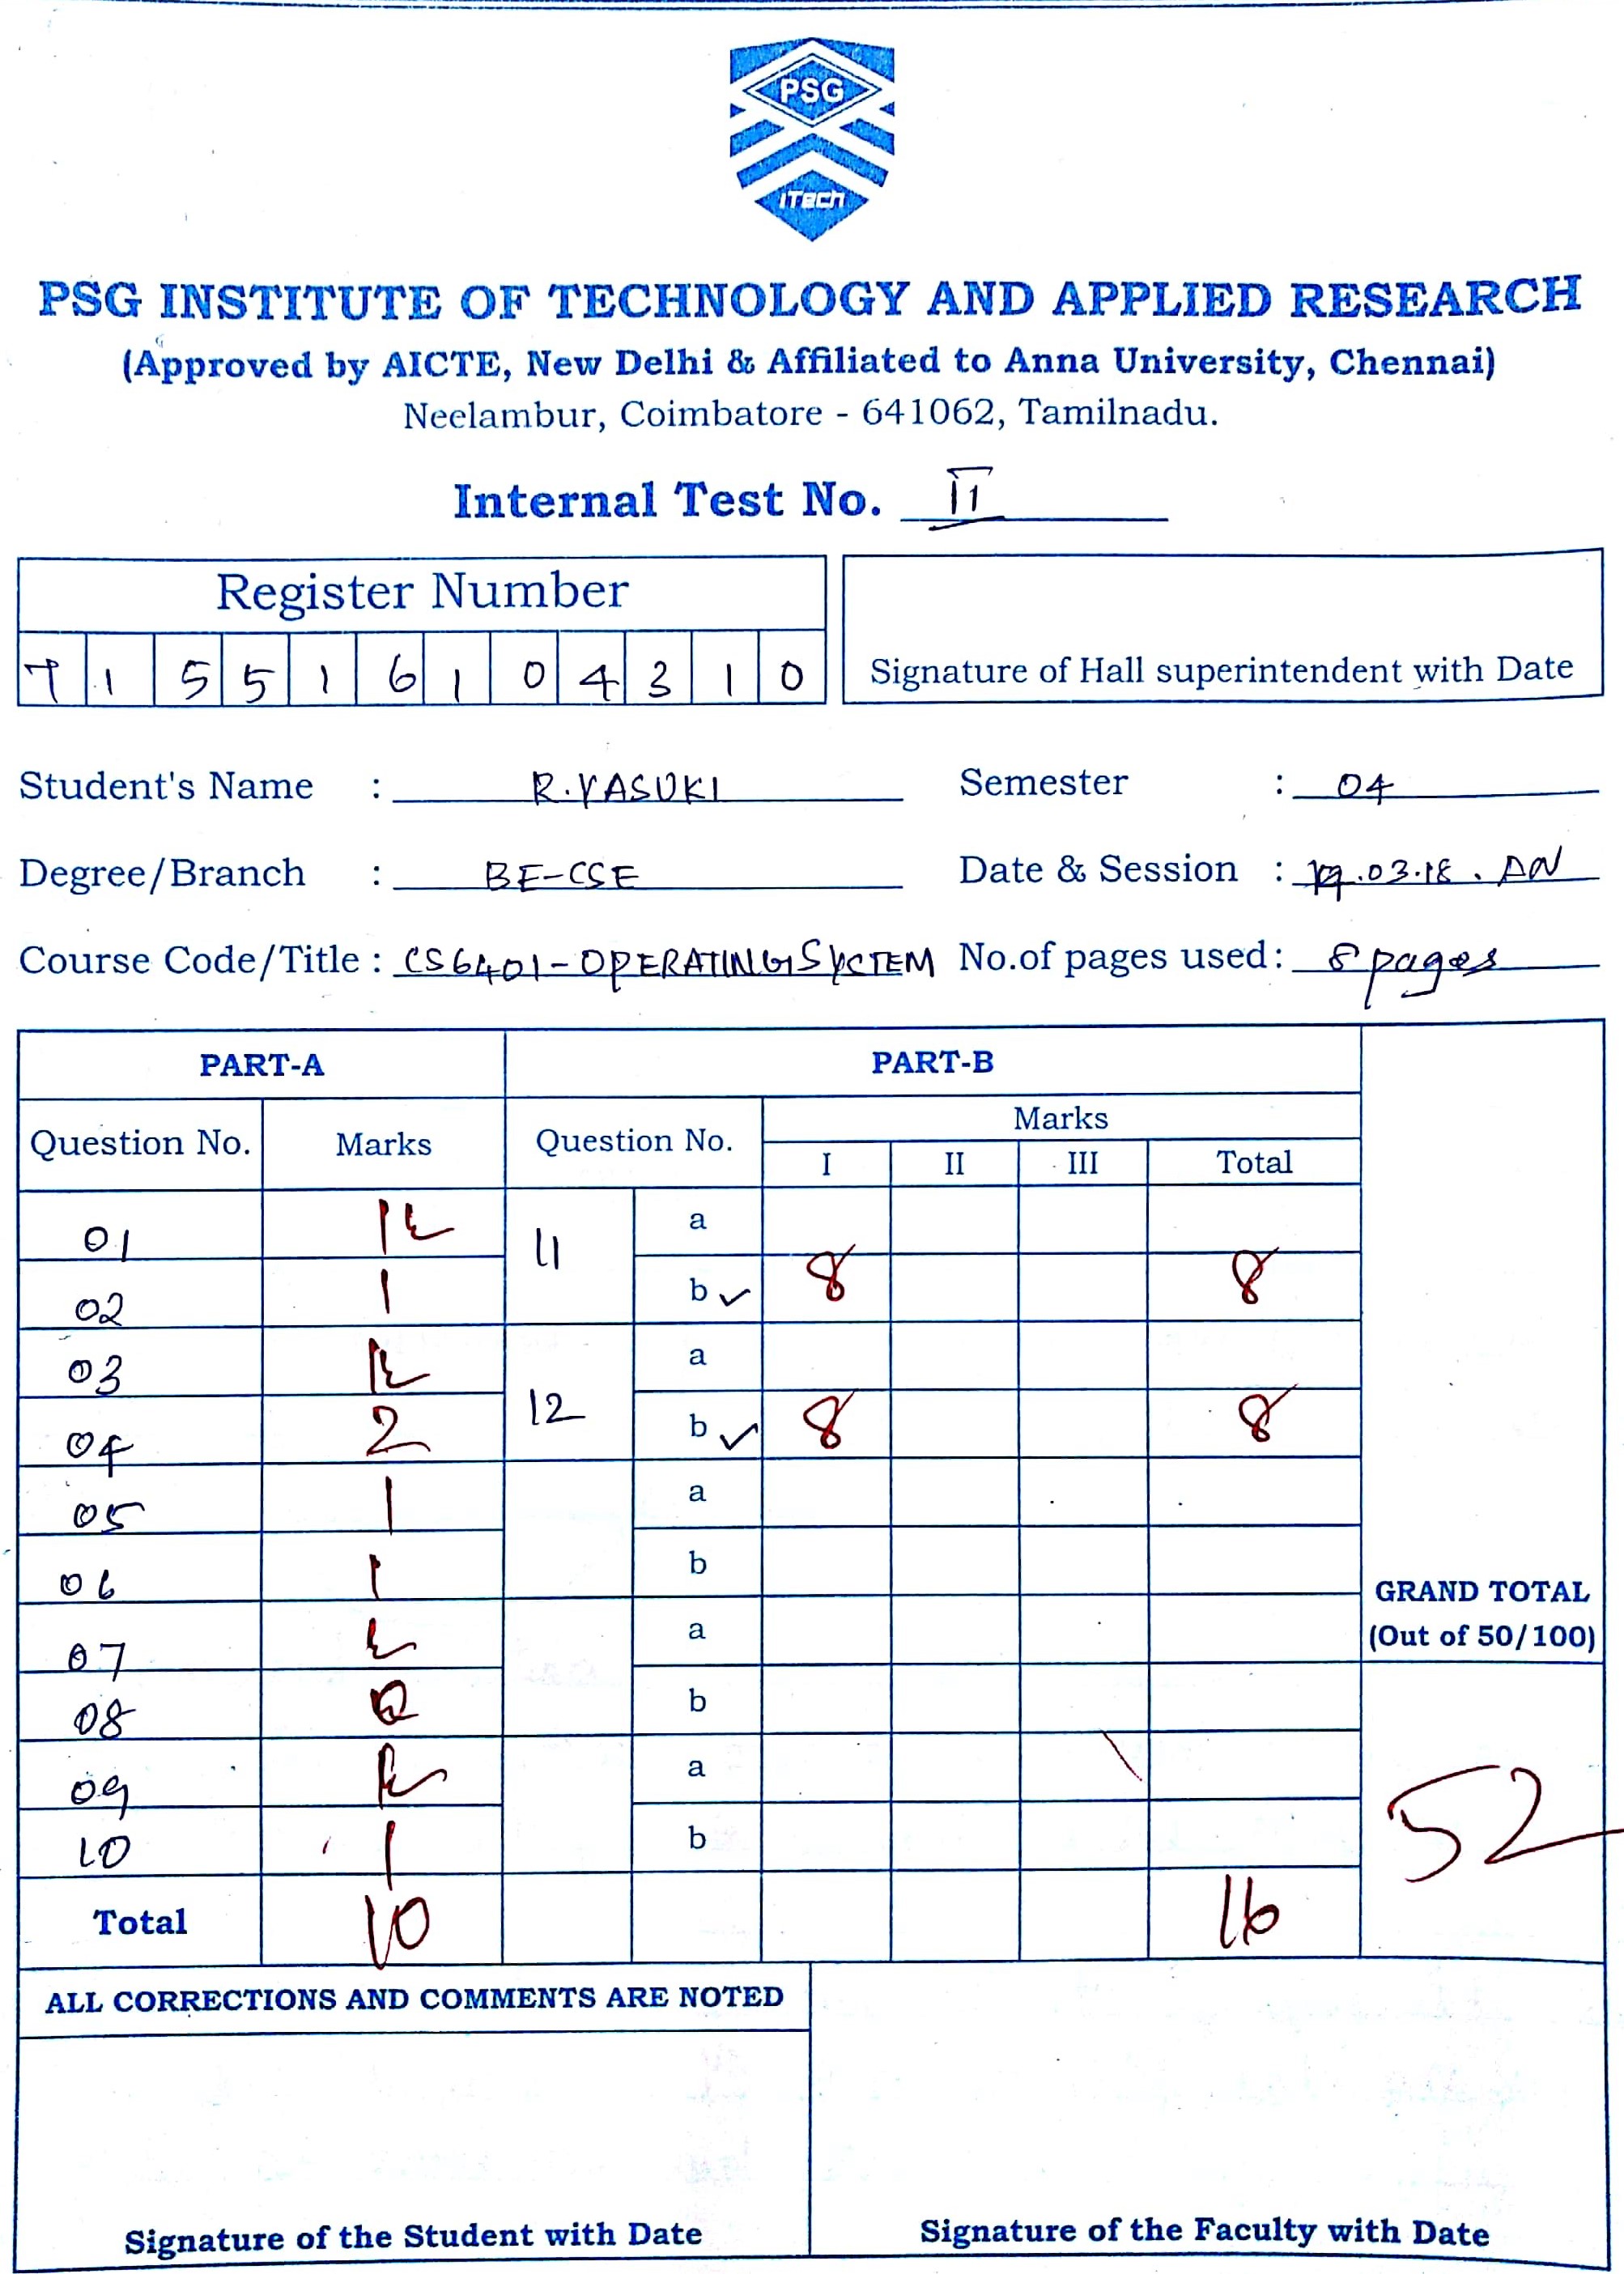 PSG
iTech
PSG INSTITUTE OF TECHNOLOGY AND APPLIED RESEARCH
(Approved by AICTE, New Delhi & Affiliated to Anna University, Chennai)
Neelambur, Coimbatore - 641062, Tamilnadu.
Internal Test No. II
Register Number
7 1 5 5 1 6 1 0 4 3 1 0
Signature of Hall superintendent with Date
Student's Name : R.VASUKI Semester : 04
Degree/Branch : BE-CSE Date & Session : .03.18 . AN
Course Code/Title : CS6401-OPERATING SYSTEM No.of pages used: 8 pages
PART-A PART-B
Question No. Marks Question No. Marks
I II III Total
01 1½ 11 a
02 1 b ✓ 8 8
03 1½ 12 a
04 2 b ✓ 8 8
05 1 a
06 1 b
07 ½ a
08 b
09 1½ a
10 1 b
GRAND TOTAL
(Out of 50/100)
52
Total 10 16
ALL CORRECTIONS AND COMMENTS ARE NOTED
Signature of the Student with Date
Signature of the Faculty with Date